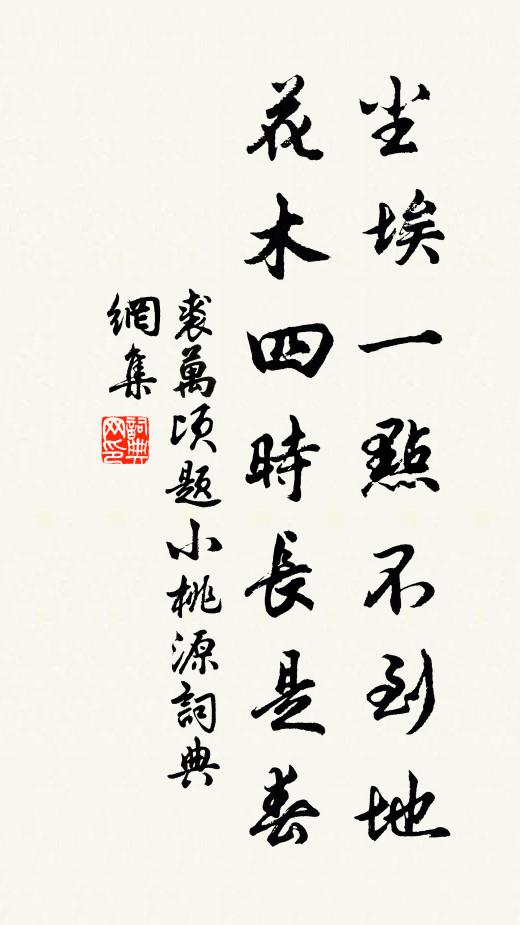 尘埃一點不到地
花木四時長是春
裘萬頃題小桃源詞典
網集
詞典網印